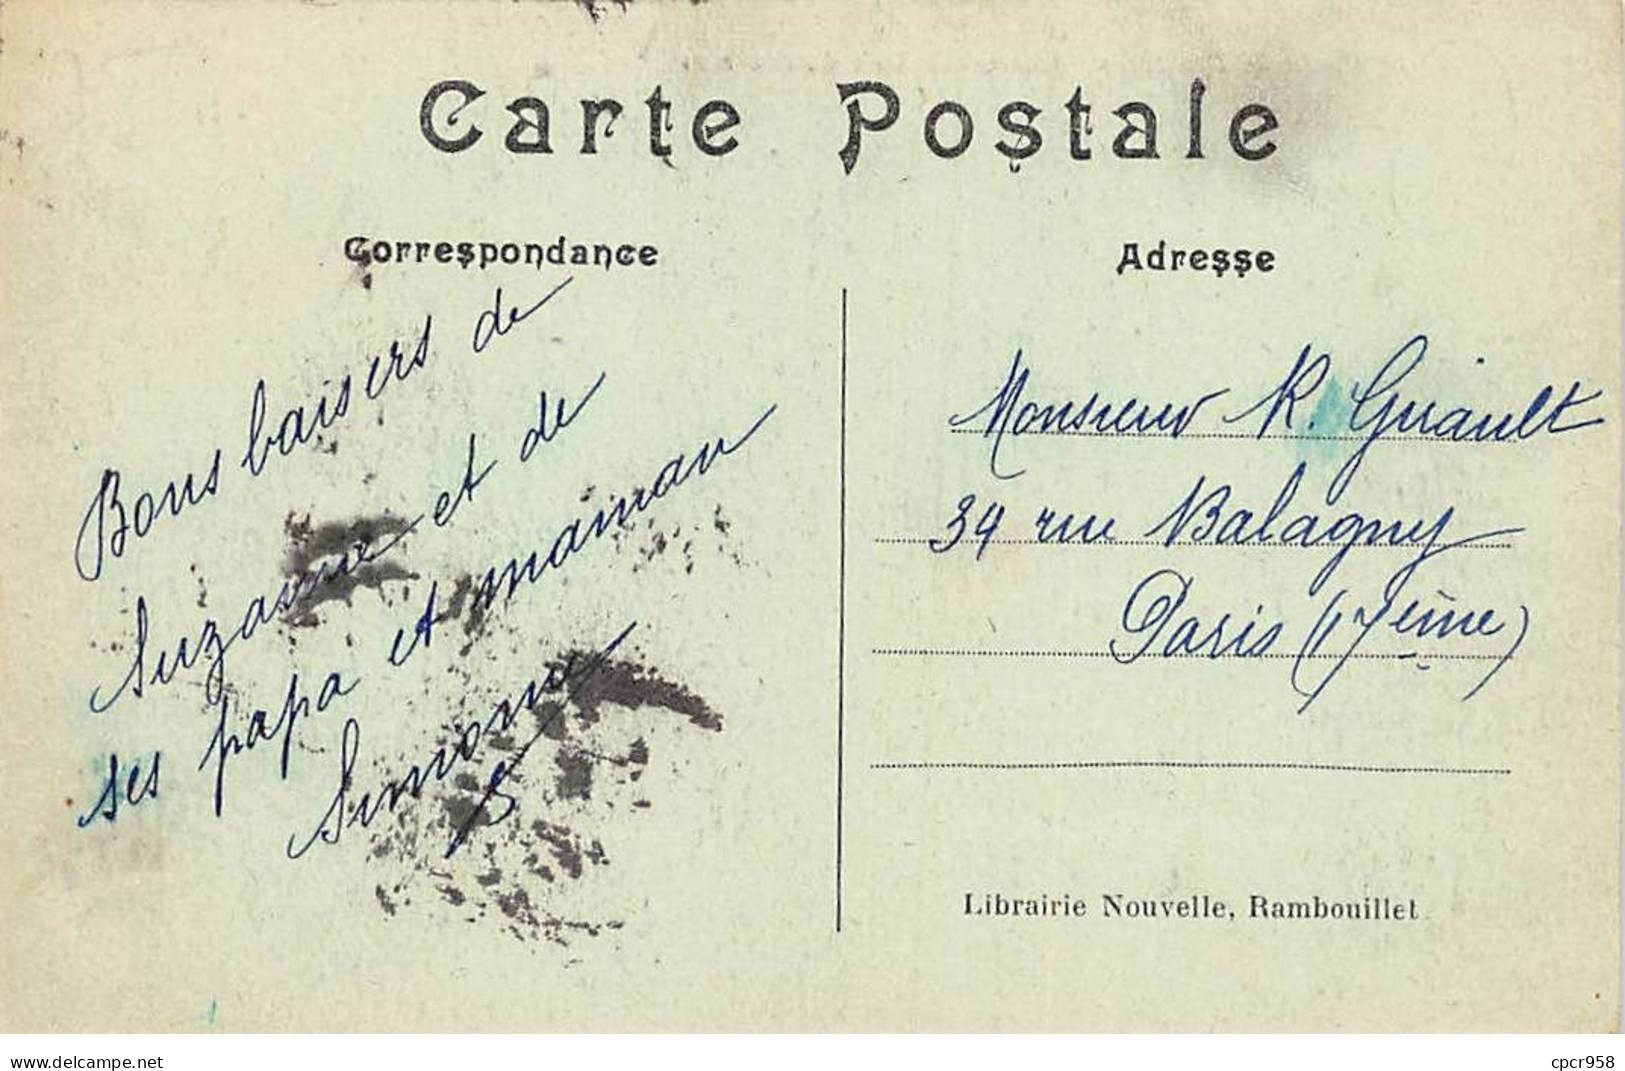 Carte Postale
Correspondance
Bons baisers de
Suzanne et de
ses papa et maman
Simone
Adresse
Monsieur R. Guiault
34 rue Balagny
Paris (17ème)
Librairie Nouvelle, Rambouillet
www.delcampe.net
cpcr958